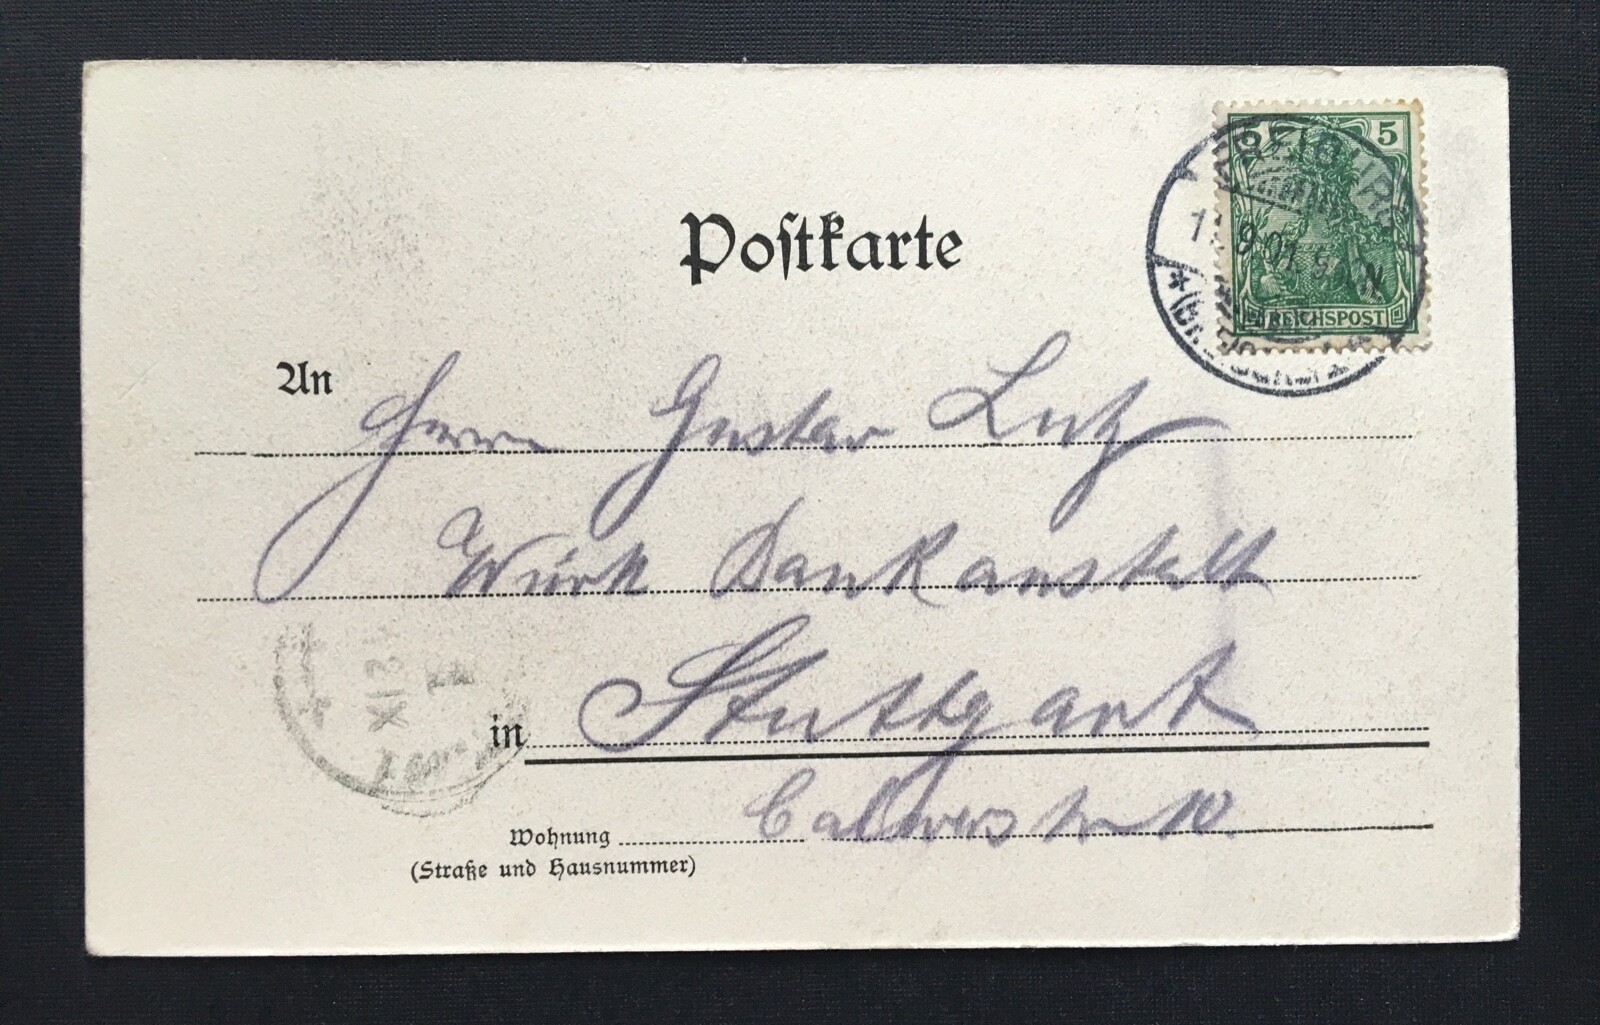 5 5
REICHSPOST
9.01.
Postkarte
An Herrn Gustav Lutz
Württ Bankanstalt
in Stuttgart
Calwerstr 10.
Wohnung
(Straße und Hausnummer)